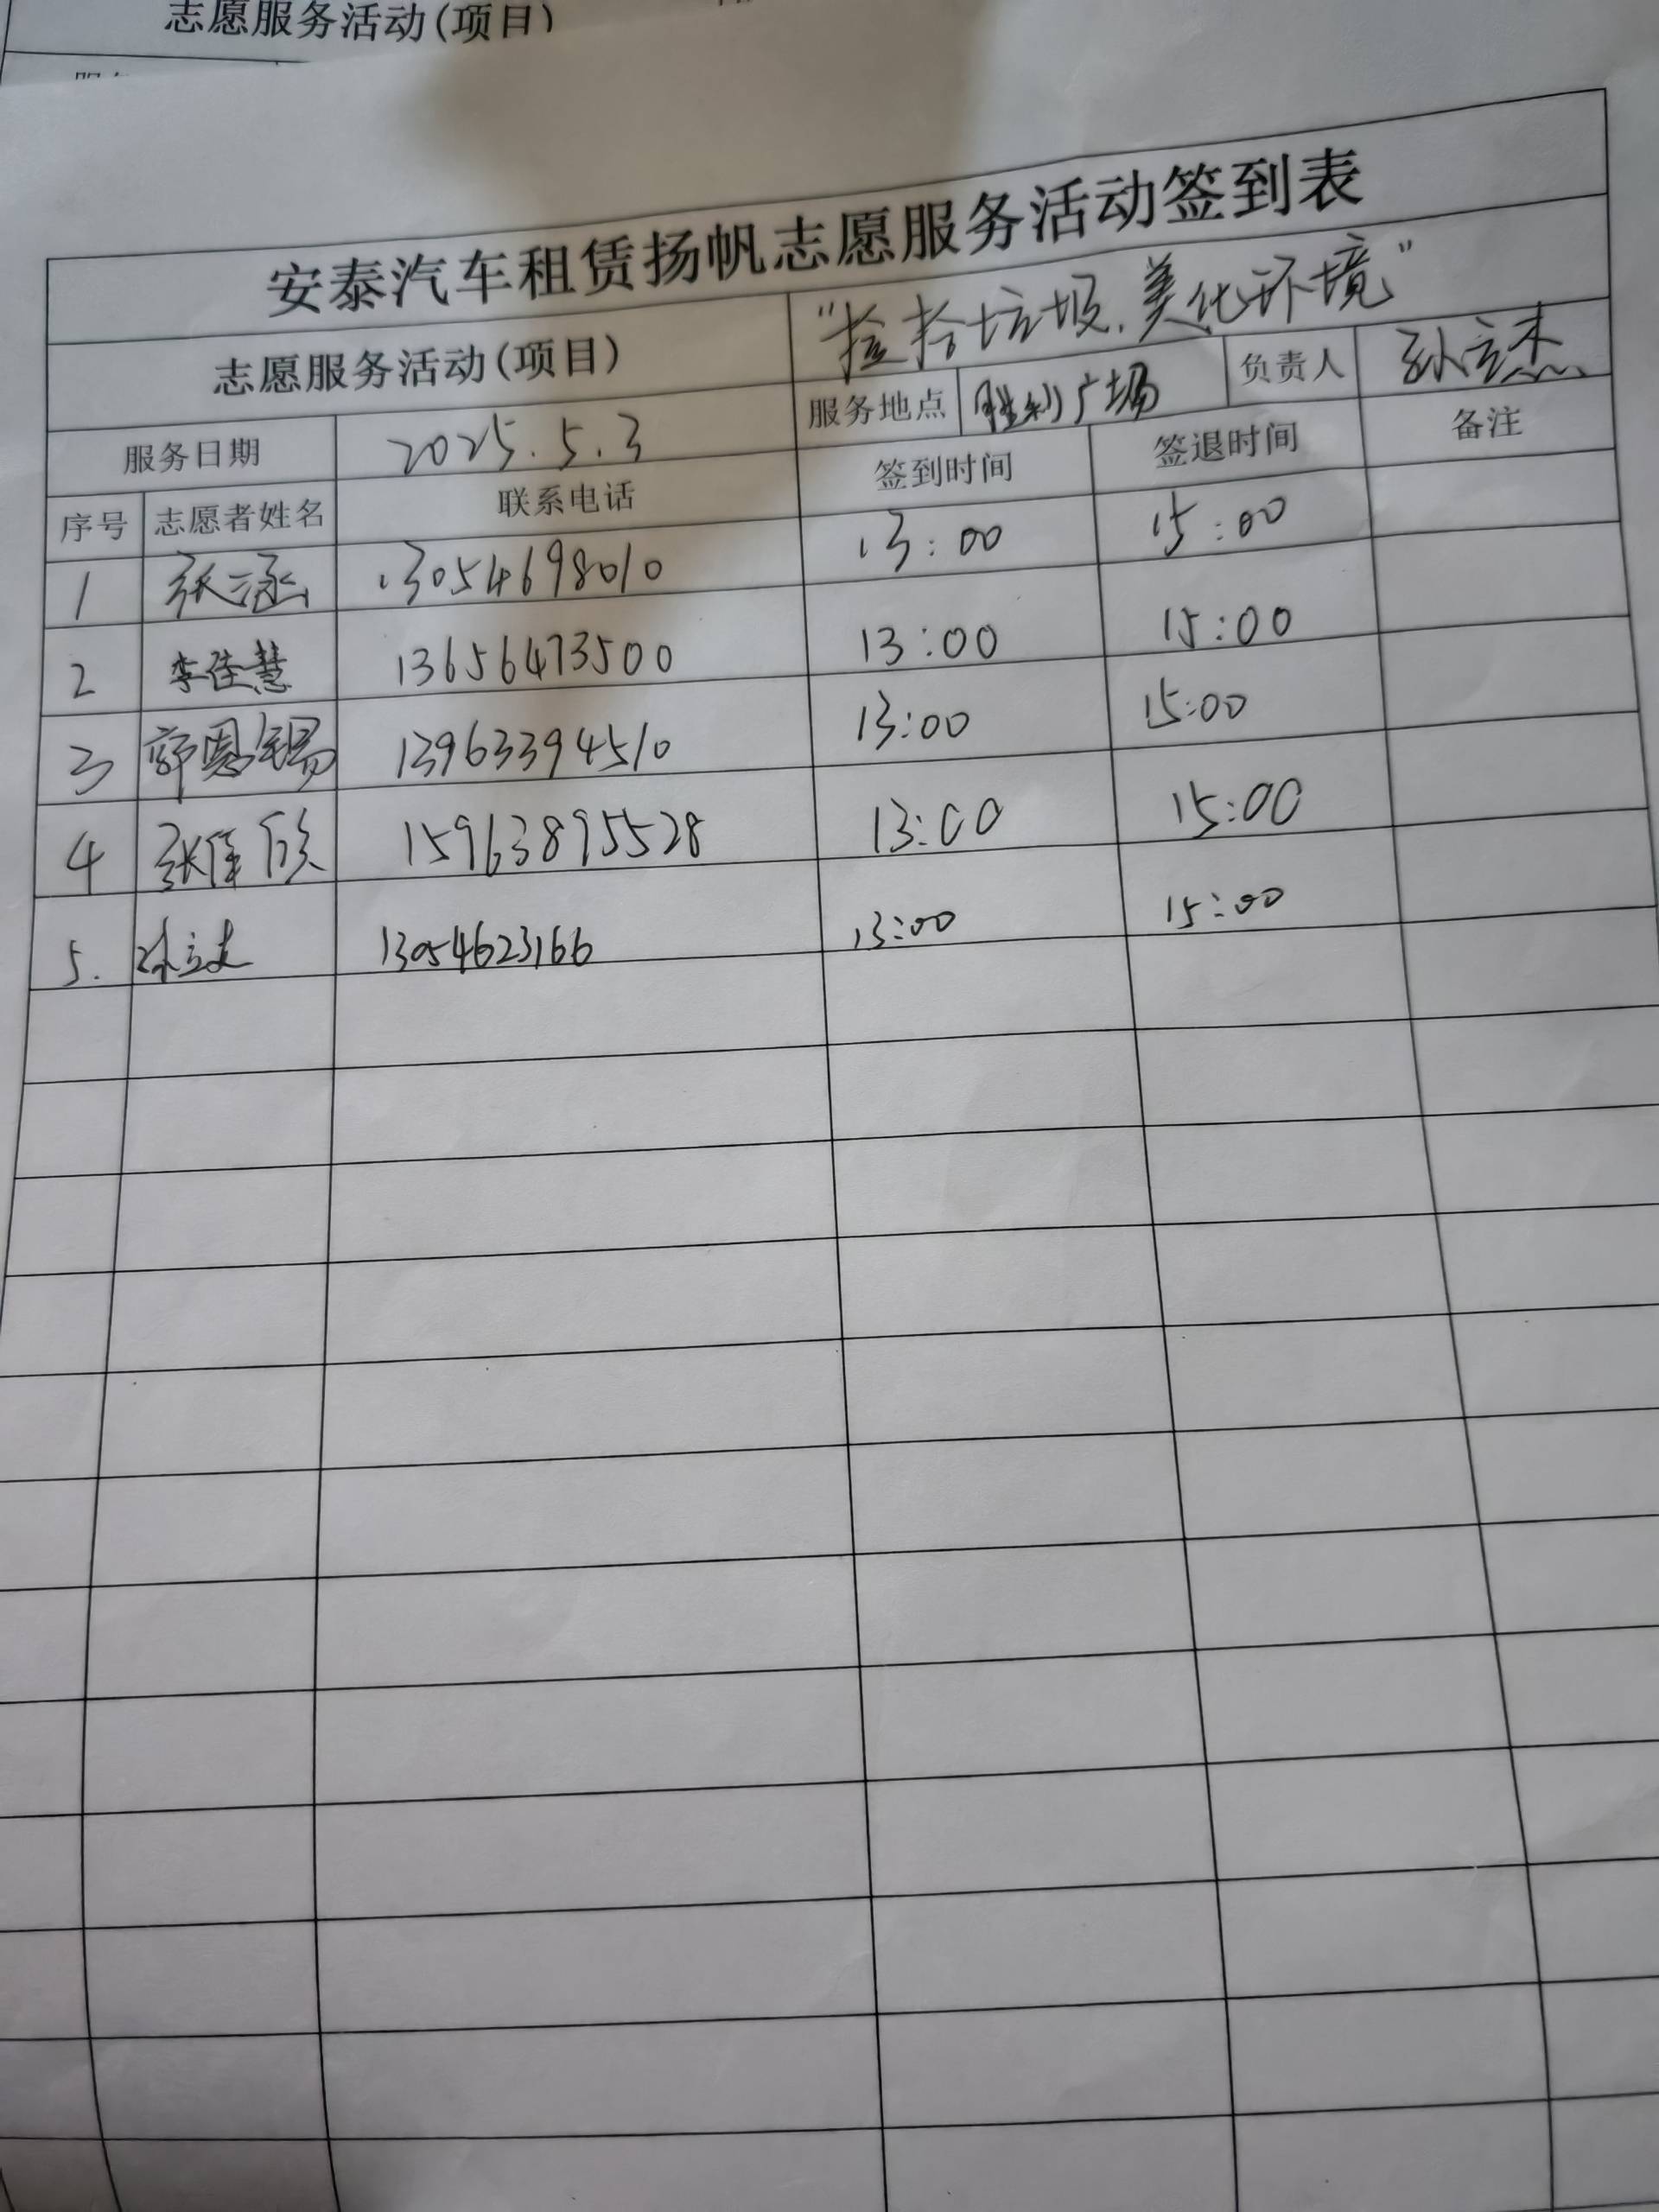 志愿服务活动(项目)
安泰汽车租赁扬帆志愿服务活动签到表
志愿服务活动(项目) "捡拾垃圾.美化环境"
服务日期 2025.5.3 服务地点 胜利广场 负责人 孙立杰
序号 志愿者姓名 联系电话 签到时间 签退时间 备注
1 张涵 13054698010 13:00 15:00
2 李佳慧 13656473500 13:00 15:00
3 郭恩锡 13963394510 13:00 15:00
4 张佳欣 15963895528 13:00 15:00
5. 孙立 13054623166 13:00 15:00